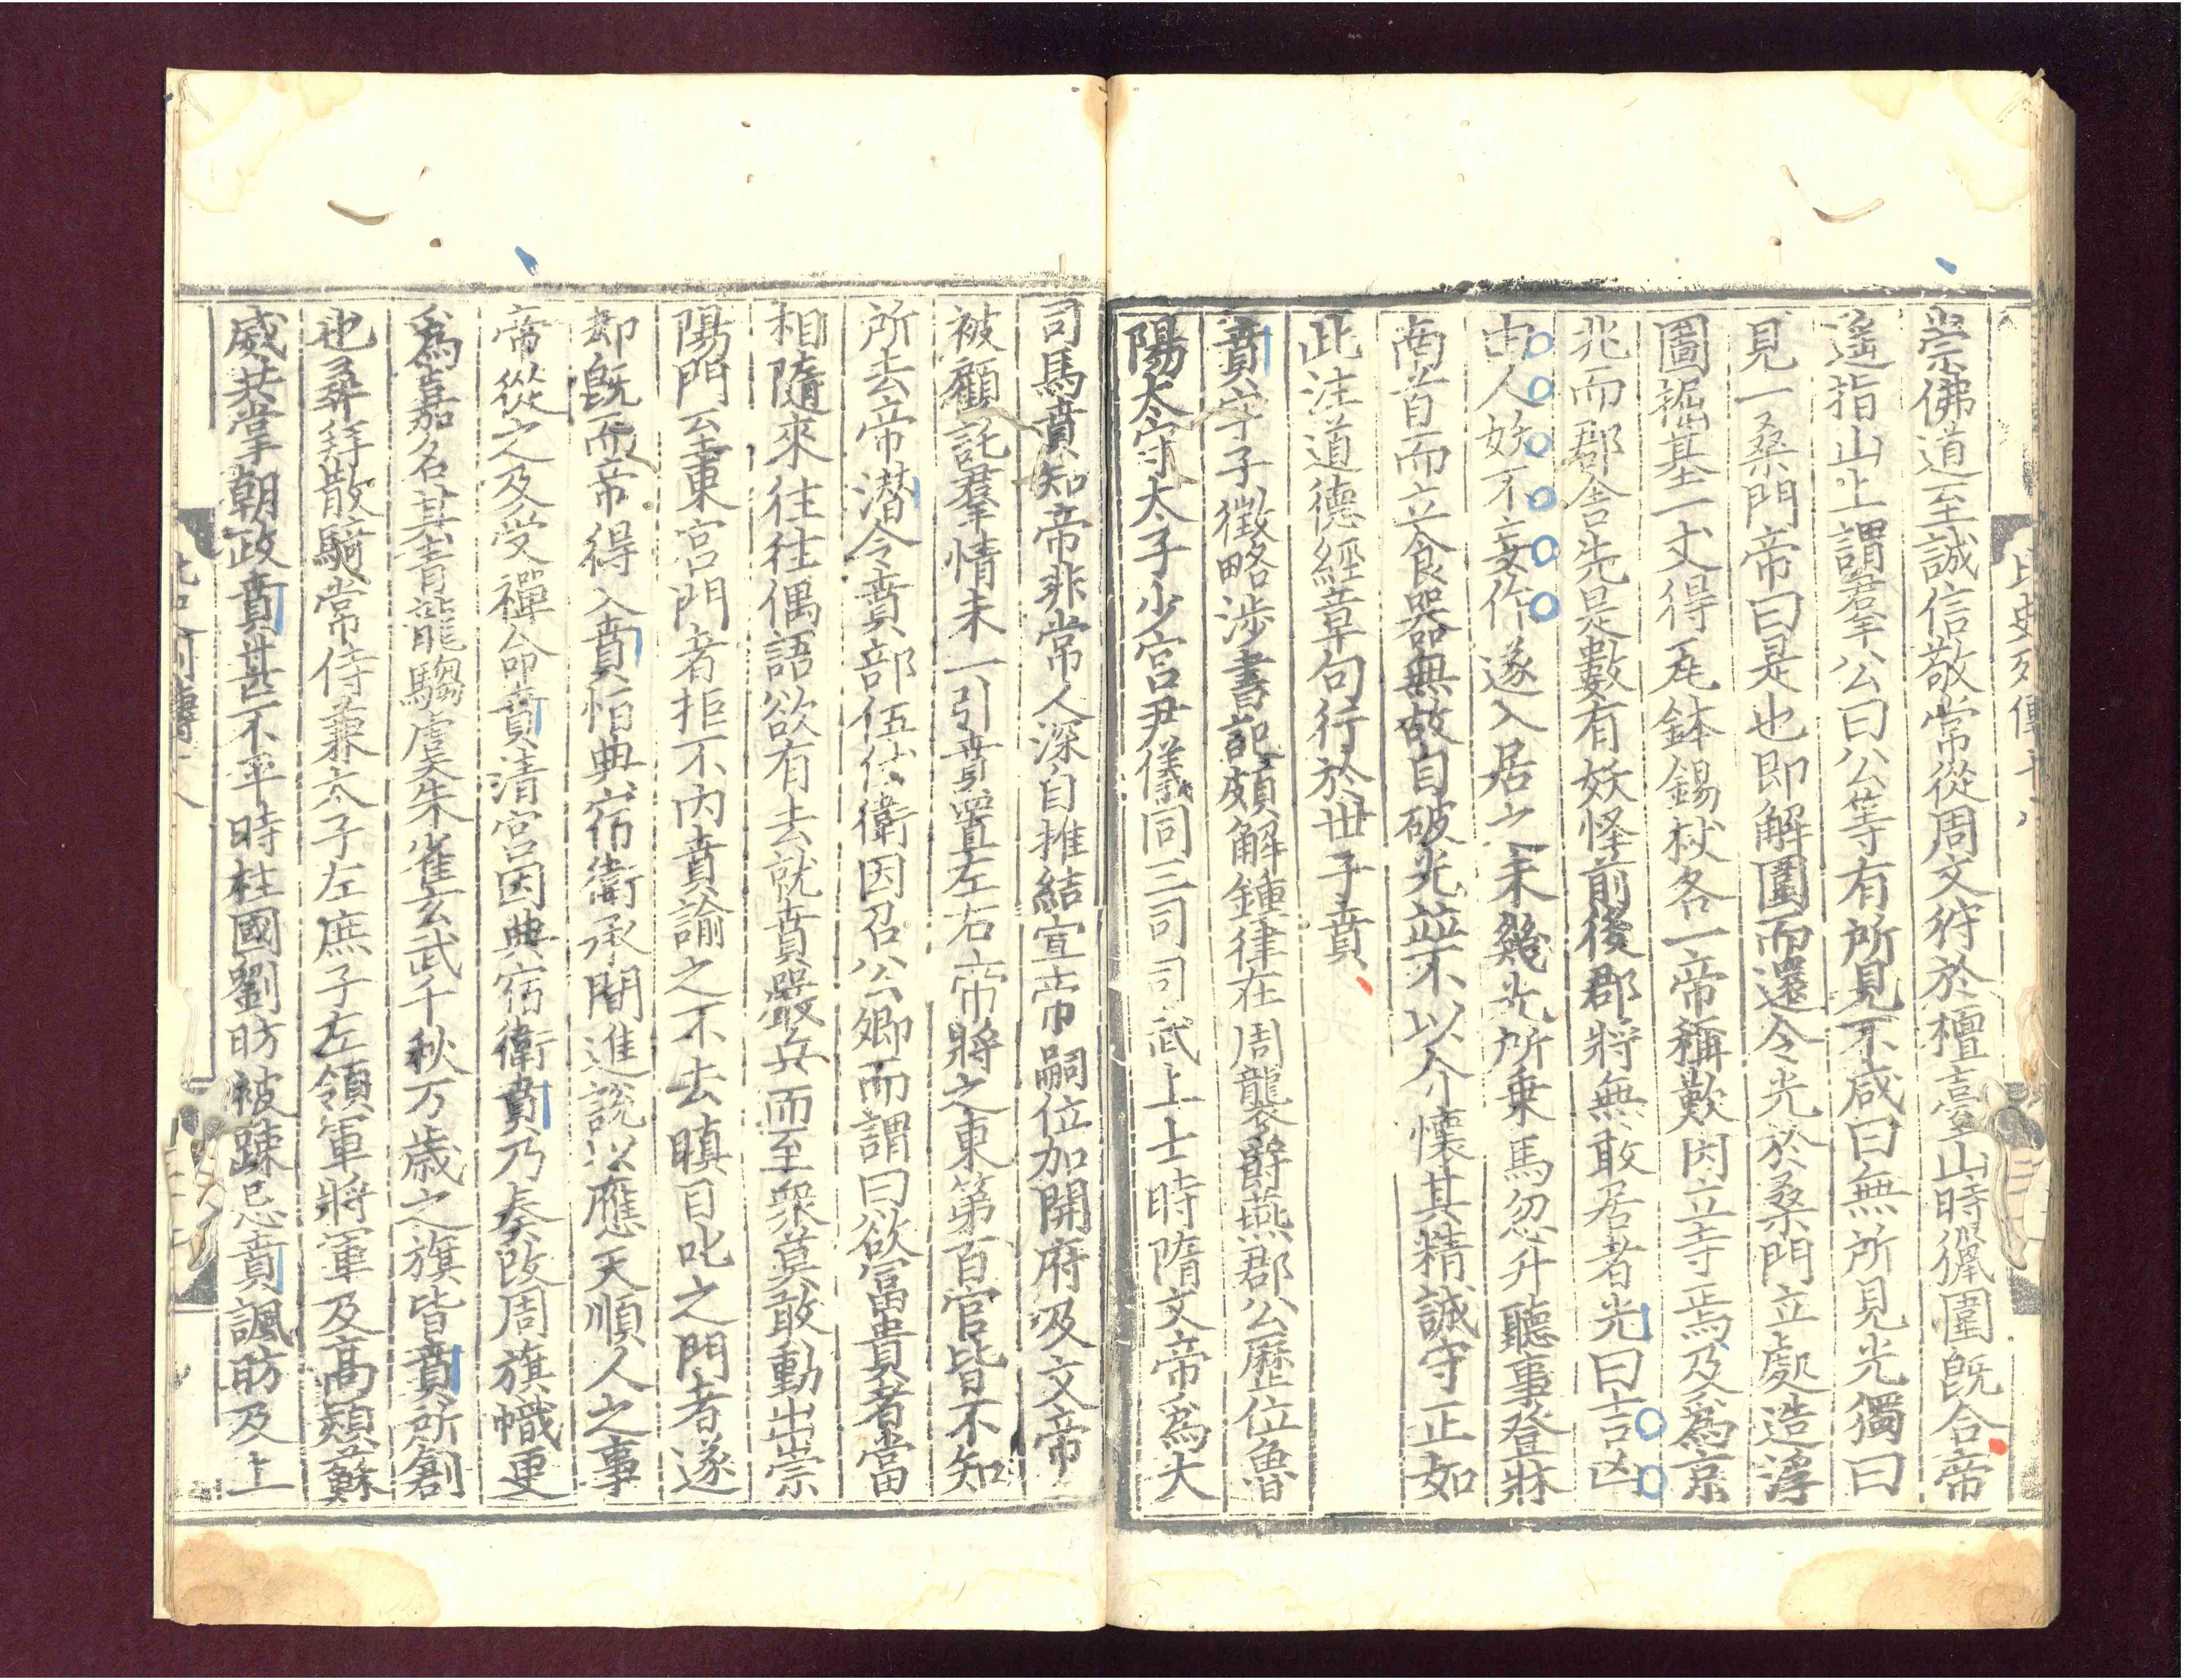 北史列傳十八
崇佛道至誠信敬常從周文狩於檀臺山時獵圍旣合帝
遙指山上謂羣公曰公等有所見不咸曰無所見光獨曰
見一桑門帝曰是也即解圍而還令光於桑門立處造浮
圖掘基一丈得瓦鉢錫杖各一帝稱歎因立寺焉及爲京
兆而郡舍先是數有妖怪前後郡將無敢居者光曰吉凶
由人妖不妄作遂入居之未幾光所乗馬忽升聽事登牀
南首而立食器無故自破光並不以介懷其精誠守正如
此注道德經章句行於世子賁
賁字子徵略涉書記頗解鍾律在周襲爵燕郡公歷位魯
陽太守太子少宫尹儀同三司司武上士時隋文帝爲大
司馬賁知帝非常人深自推結宣帝嗣位加開府及文帝
被顧託羣情未一引賁置左右帝將之東第百官皆不知
所去帝潛令賁部伍仗衛因召公卿而謂曰欲富貴者當
相隨來往往偶語欲有去就賁嚴兵而至衆莫敢動出崇
陽門至東宫門者拒不内賁諭之不去瞋目叱之門者遂
却旣而帝得入賁恒典宿衛承閒進説以應天順人之事
帝從之及受禪命賁清宫因典宿衛賁乃奏改周旗幟更
爲嘉名其青龍騶虞朱雀玄武千秋万歲之旗皆賁所創
也尋拜散騎常侍兼太子左庶子左領軍將軍及高熲蘇
威共掌朝政賁甚不平時柱國劉昉被踈忌賁諷昉及上